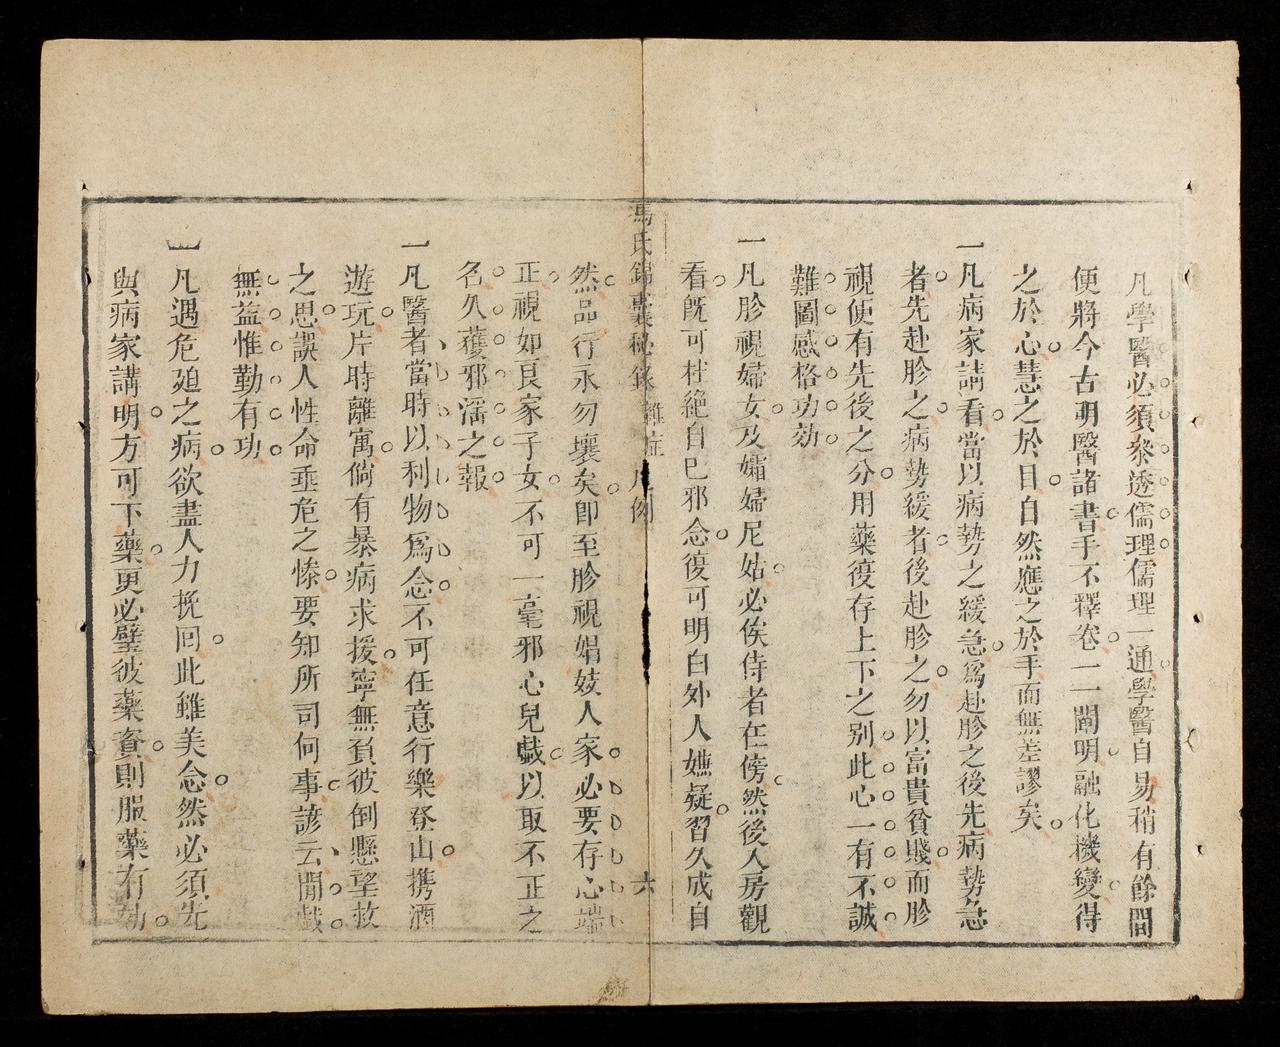 凡學醫必須叅透儒理儒理一通學醫自易稍有餘閒
便將今古明醫諸書手不釋卷一一闡明融化機變得
之於心慧之於目自然應之於手而無差謬矣
一凡病家請看當以病勢之緩急爲赴胗之後先病勢急
者先赴胗之病勢緩者後赴胗之勿以富貴貧賤而胗
視便有先後之分用藥復存上下之别此心一有不誠
難圖感格功効
一凡胗視婦女及孀婦尼姑必俟侍者在傍然後入房觀
看旣可杜絶自已邪念復可明白外人嫌疑習久成自
馮氏錦囊秘錄 雜症 凡例 六
然品行永勿壞矣卽至胗視娼妓人家必要存心端
正視如良家子女不可一毫邪心兒戱以取不正之
名久獲邪滛之報
一凡醫者當時以利物爲念不可任意行樂登山携酒
遊玩片時離寓倘有暴病求援寧無負彼倒懸望救
之思誤人性命垂危之愫要知所司何事諺云閒戱
無益惟勤有功
一凡遇危廹之病欲盡人力挽囘此雖美念然必須先
與病家講明方可下藥更必璧彼藥資則服藥有効